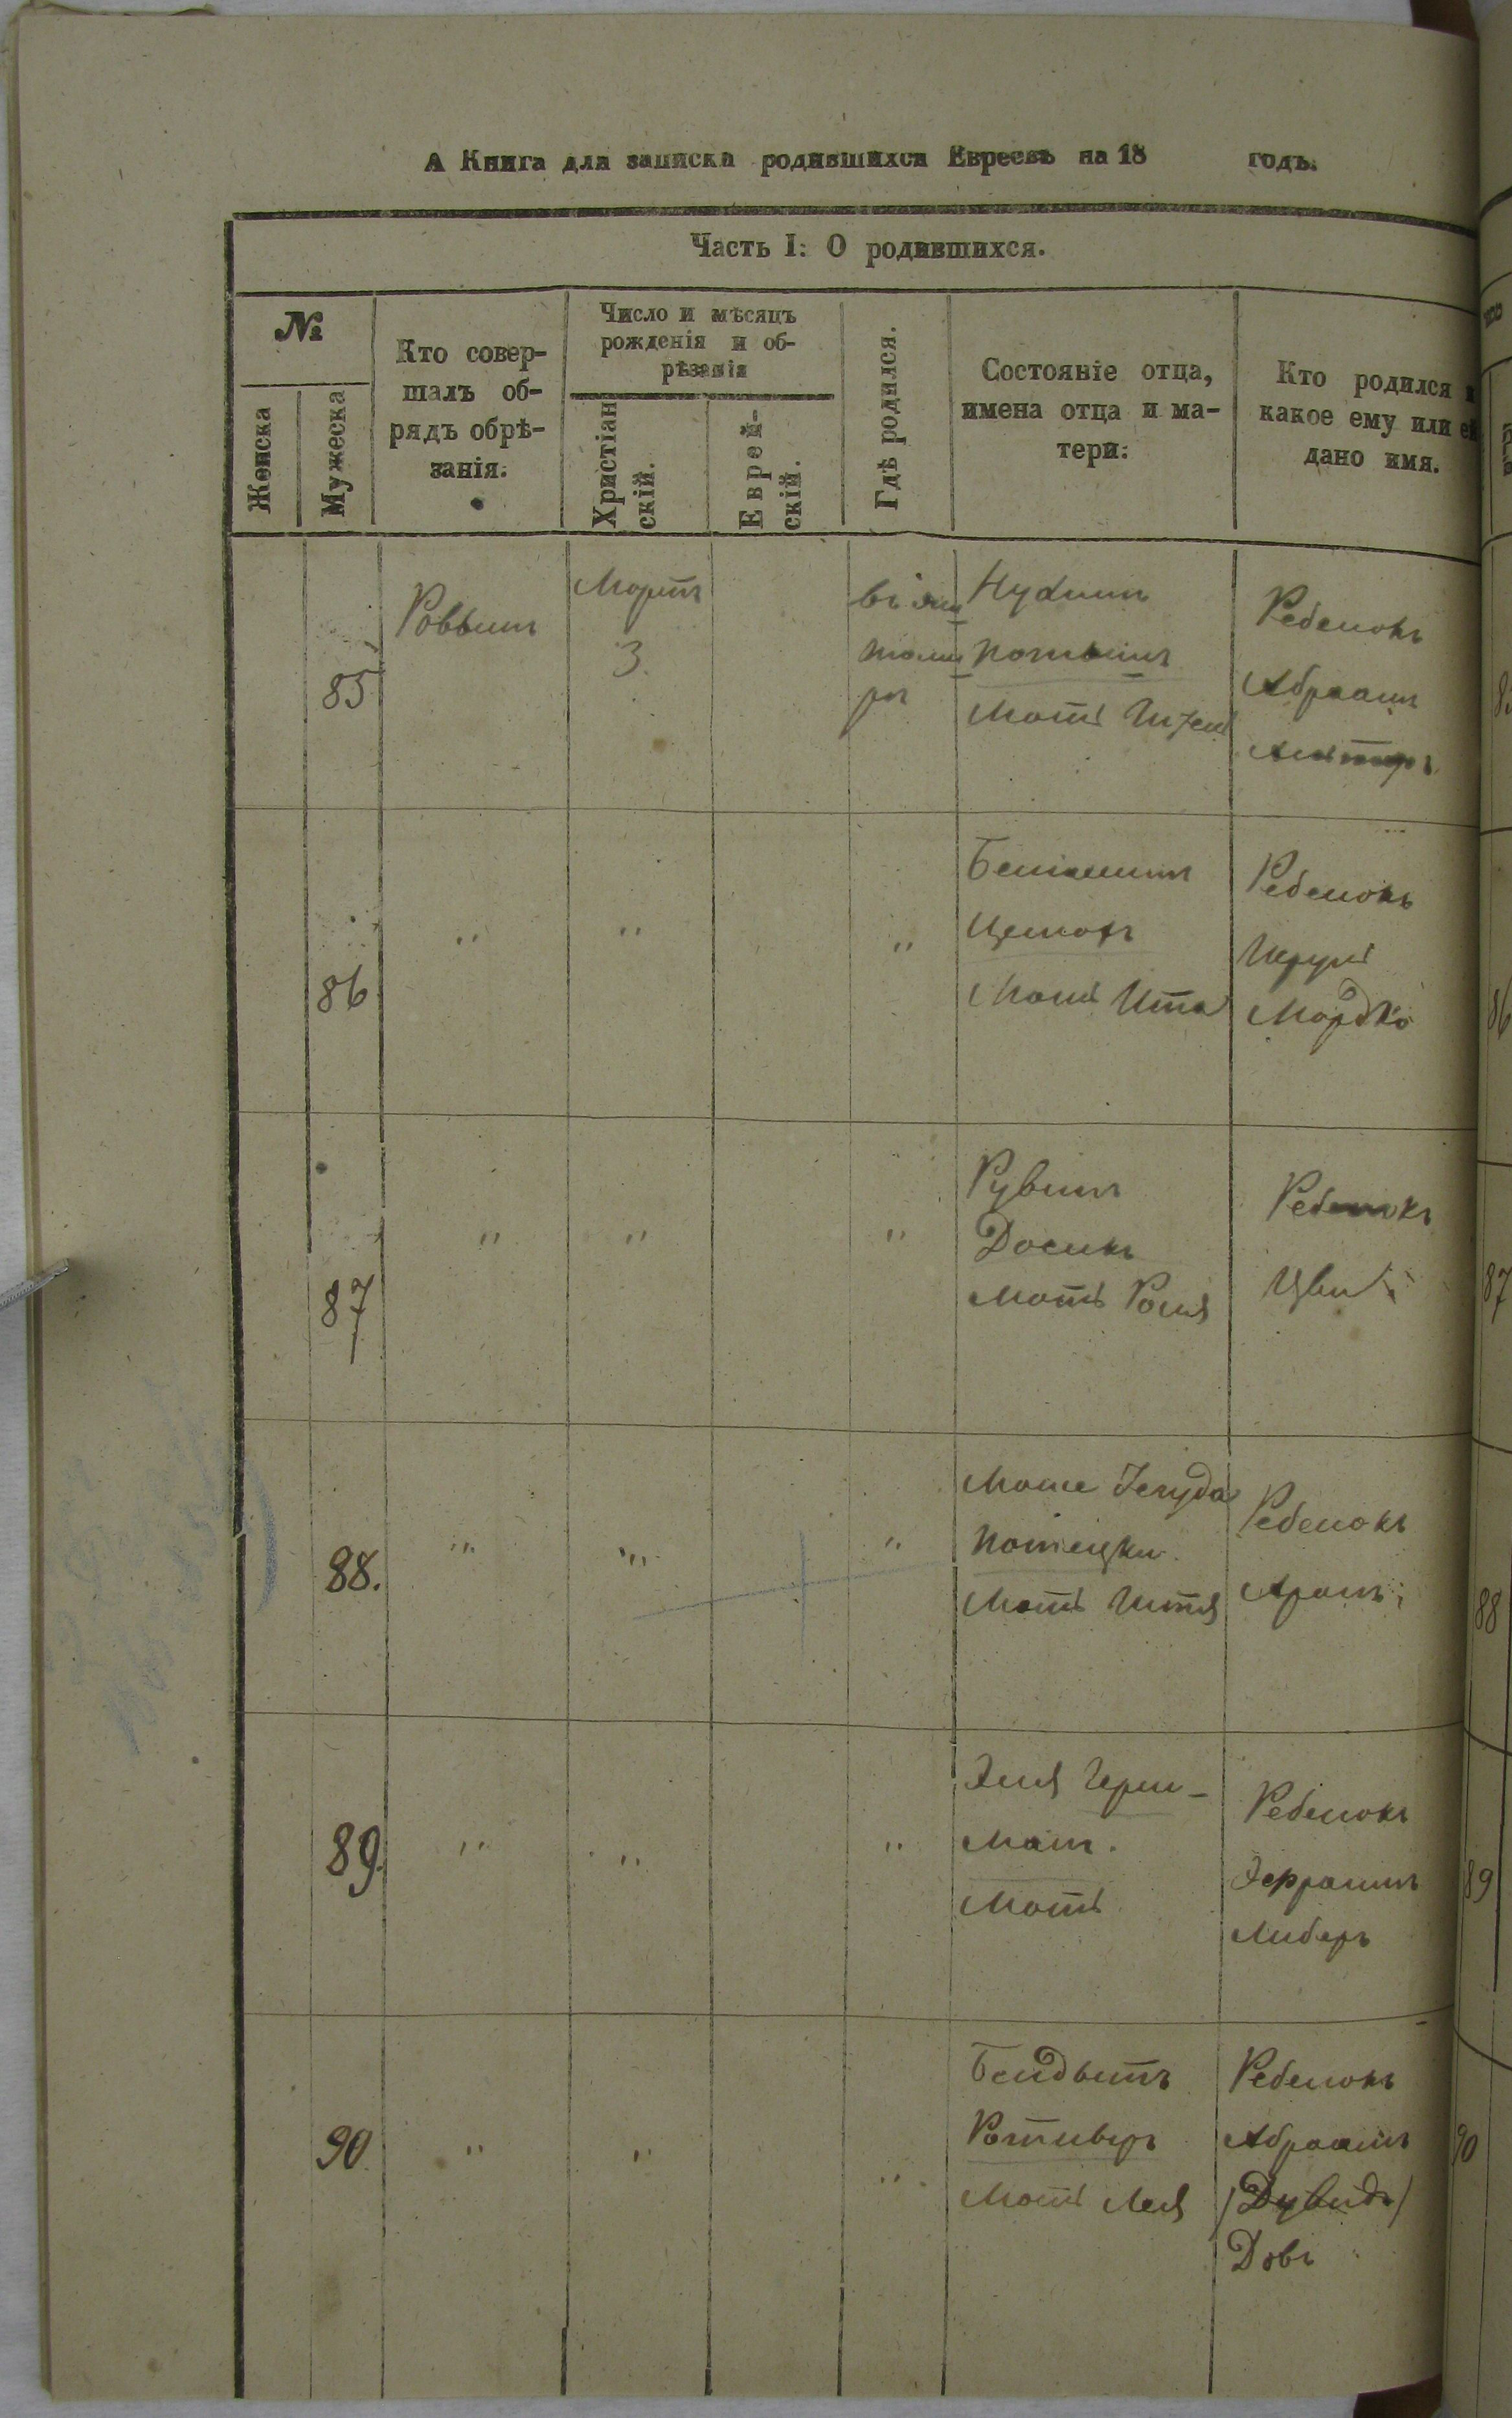 А Книга для записка родившихся Евреевъ на 18 годъ.
Часть I: О родившихся.
№
Женска
Мужеска
Кто совер-
шалъ об-
рядъ обрѣ-
занія.
Число и мѣсяцъ
рожденія и об-
рѣзанія
Христіан
скій.
Еврей-
скій.
Гдѣ родился.
Состояніе отца,
имена отца и ма-
тери.
Кто родился и
какое ему или ей
дано имя.
85
Раввинъ
Мартъ
3.
Нудиш
Мать
Ребенокъ
Абрамъ
Альтеръ
85
86
"
"
"
Бениаминъ
Мать Ита
Ребенокъ
Мордко
86
87
"
"
"
Рувинъ
Досикъ
Мать Рося
Ребенокъ
Цви
87
88.
"
"
"
Моше Іегуда
Потоцки
Мать Итя
Ребенокъ
Аронъ
88
89.
"
"
"
Эля Герш-
манъ.
Мать
Ребенокъ
Эфраимъ
Либеръ
89
90.
"
"
"
Бендетъ
Ротиверъ
Мать Лея
Ребенокъ
Абраамъ
/Дувидъ/
Довъ
90